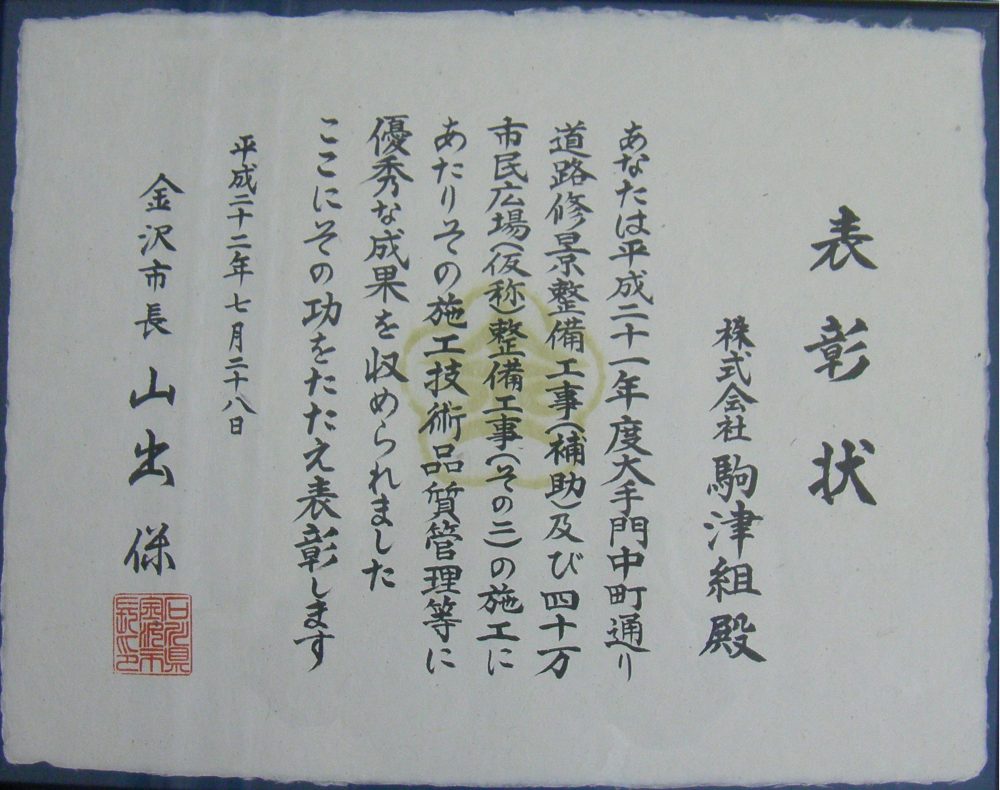 表彰状
株式会社 駒津組殿
あなたは平成二十一年度大手門中町通り
道路修景整備工事(補助)及び四十万
市民広場(仮称)整備工事(その二)の施工に
あたりその施工技術品質管理等に
優秀な成果を収められました
ここにその功をたたえ表彰します
平成二十二年七月二十八日
金沢市長 山出 保
石川県
金沢市
長之印